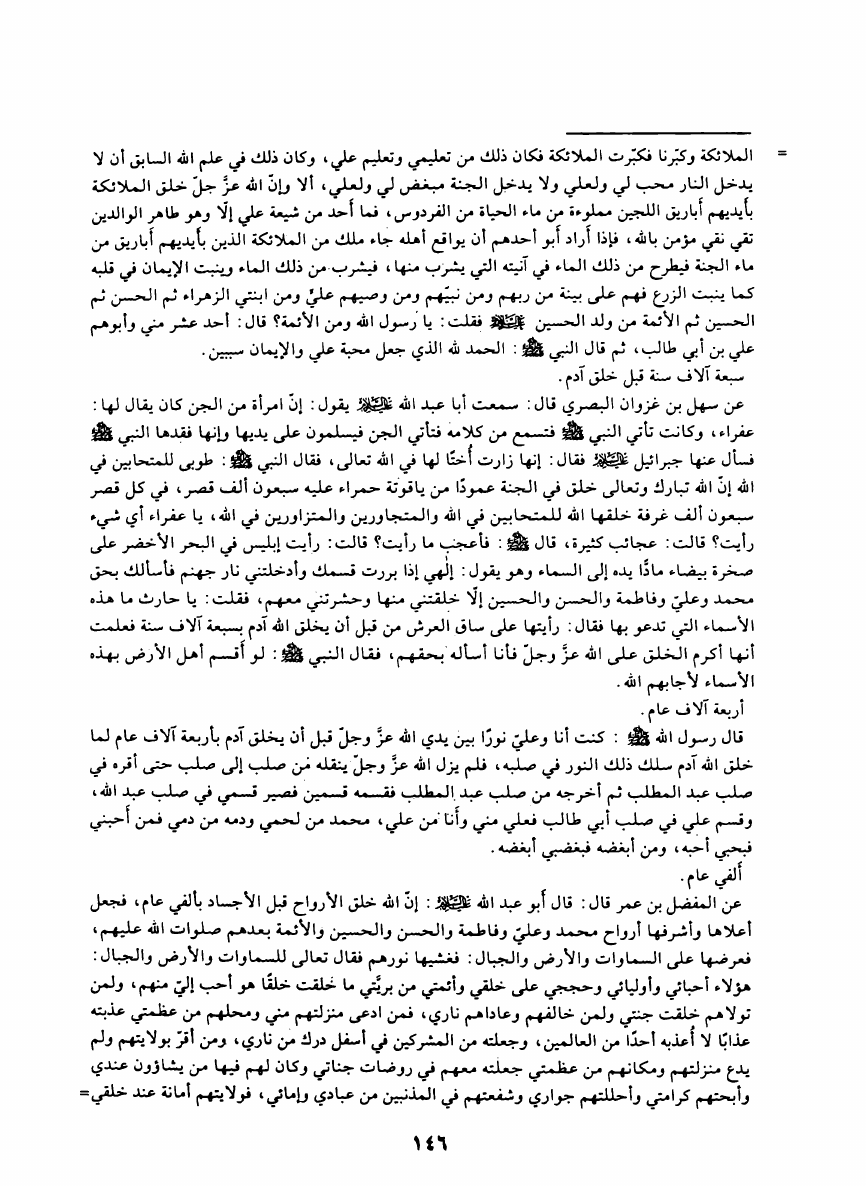 = الملائكة وكبّرنا فكبّرت الملائكة فكان ذلك من تعليمي وتعليم علي، وكان ذلك في علم الله السابق أن لا
يدخل النار محب لي ولعلي ولا يدخل الجنة مبغض لي ولعلي، ألا وإنّ الله عزَّ جلّ خلق الملائكة
بأيديهم أباريق اللجين مملوءة من ماء الحياة من الفردوس، فما أحد من شيعة علي إلّا وهو طاهر الوالدين
تقي نقي مؤمن بالله، فإذا أراد أبو أحدهم أن يواقع أهله جاء ملك من الملائكة الذين بأيديهم أباريق من
ماء الجنة فيطرح من ذلك الماء في آنيته التي يشرب منها، فيشرب من ذلك الماء وينبت الإيمان في قلبه
كما ينبت الزرع فهم على بينة من ربهم ومن نبيّهم ومن وصيهم عليّ ومن ابنتي الزهراء ثم الحسن ثم
الحسين ثم الأئمة من ولد الحسين عليهم السلام فقلت: يا رسول الله ومن الأئمة؟ قال: أحد عشر مني وأبوهم
علي بن أبي طالب، ثم قال النبي ﷺ: الحمد لله الذي جعل محبة علي والإيمان سببين.
سبعة آلاف سنة قبل خلق آدم.
عن سهل بن غزوان البصري قال: سمعت أبا عبد الله عليه السلام يقول: إنّ امرأة من الجن كان يقال لها:
عفراء، وكانت تأتي النبي ﷺ فتسمع من كلامه فتأتي الجن فيسلمون على يديها وإنها فقدها النبي ﷺ
فسأل عنها جبرائيل عليه السلام فقال: إنها زارت أُختًا لها في الله تعالى، فقال النبي ﷺ: طوبى للمتحابين في
الله إنّ الله تبارك وتعالى خلق في الجنة عمودًا من ياقوتة حمراء عليه سبعون ألف قصر، في كل قصر
سبعون ألف غرفة خلقها الله للمتحابين في الله والمتجاورين والمتزاورين في الله، يا عفراء أي شيء
رأيت؟ قالت: عجائب كثيرة، قال ﷺ: فأعجب ما رأيت؟ قالت: رأيت إبليس في البحر الأخضر على
صخرة بيضاء مادًّا يده إلى السماء وهو يقول: إلٰهي إذا بررت قسمك وأدخلتني نار جهنم فأسألك بحق
محمد وعليّ وفاطمة والحسن والحسين إلّا خلقتني منها وحشرتني معهم، فقلت: يا حارث ما هذه
الأسماء التي تدعو بها فقال: رأيتها على ساق العرش من قبل أن يخلق الله آدم بسبعة آلاف سنة فعلمت
أنها أكرم الخلق على الله عزَّ وجلّ فأنا أسأله بحقهم، فقال النبي ﷺ: لو أقسم أهل الأرض بهذه
الأسماء لأجابهم الله.
أربعة آلاف عام.
قال رسول الله ﷺ: كنت أنا وعليّ نورًا بين يدي الله عزَّ وجلّ قبل أن يخلق آدم بأربعة آلاف عام لما
خلق الله آدم سلك ذلك النور في صلبه، فلم يزل الله عزَّ وجلّ ينقله من صلب إلى صلب حتى أقره في
صلب عبد المطلب ثم أخرجه من صلب عبد المطلب فقسمه قسمين فصير قسمي في صلب عبد الله،
وقسم علي في صلب أبي طالب فعلي مني وأنا من علي، محمد من لحمي ودمه من دمي فمن أحبني
فبحبي أحبه، ومن أبغضه فبغضبي أبغضه.
ألفي عام.
عن المفضل بن عمر قال: قال أبو عبد الله عليه السلام: إنّ الله خلق الأرواح قبل الأجساد بألفي عام، فجعل
أعلاها وأشرفها أرواح محمد وعليّ وفاطمة والحسن والحسين والأئمة بعدهم صلوات الله عليهم،
فعرضها على السماوات والأرض والجبال: فغشيها نورهم فقال تعالى للسماوات والأرض والجبال:
هؤلاء أحبائي وأوليائي وحججي على خلقي وأئمتي من بريَّتي ما خلقت خلقًا هو أحب إليّ منهم، ولمن
تولاهم خلقت جنتي ولمن خالفهم وعاداهم ناري، فمن ادعى منزلتهم مني ومحلهم من عظمتي عذبته
عذابًا لا أُعذبه أحدًا من العالمين، وجعلته من المشركين في أسفل درك من ناري، ومن أقرّ بولايتهم ولم
يدع منزلتهم ومكانهم من عظمتي جعلته معهم في روضات جناتي وكان لهم فيها من يشاؤون عندي
وأبحتهم كرامتي وأحللتهم جواري وشفعتهم في المذنبين من عبادي وإمائي، فولايتهم أمانة عند خلقي=
١٤٦